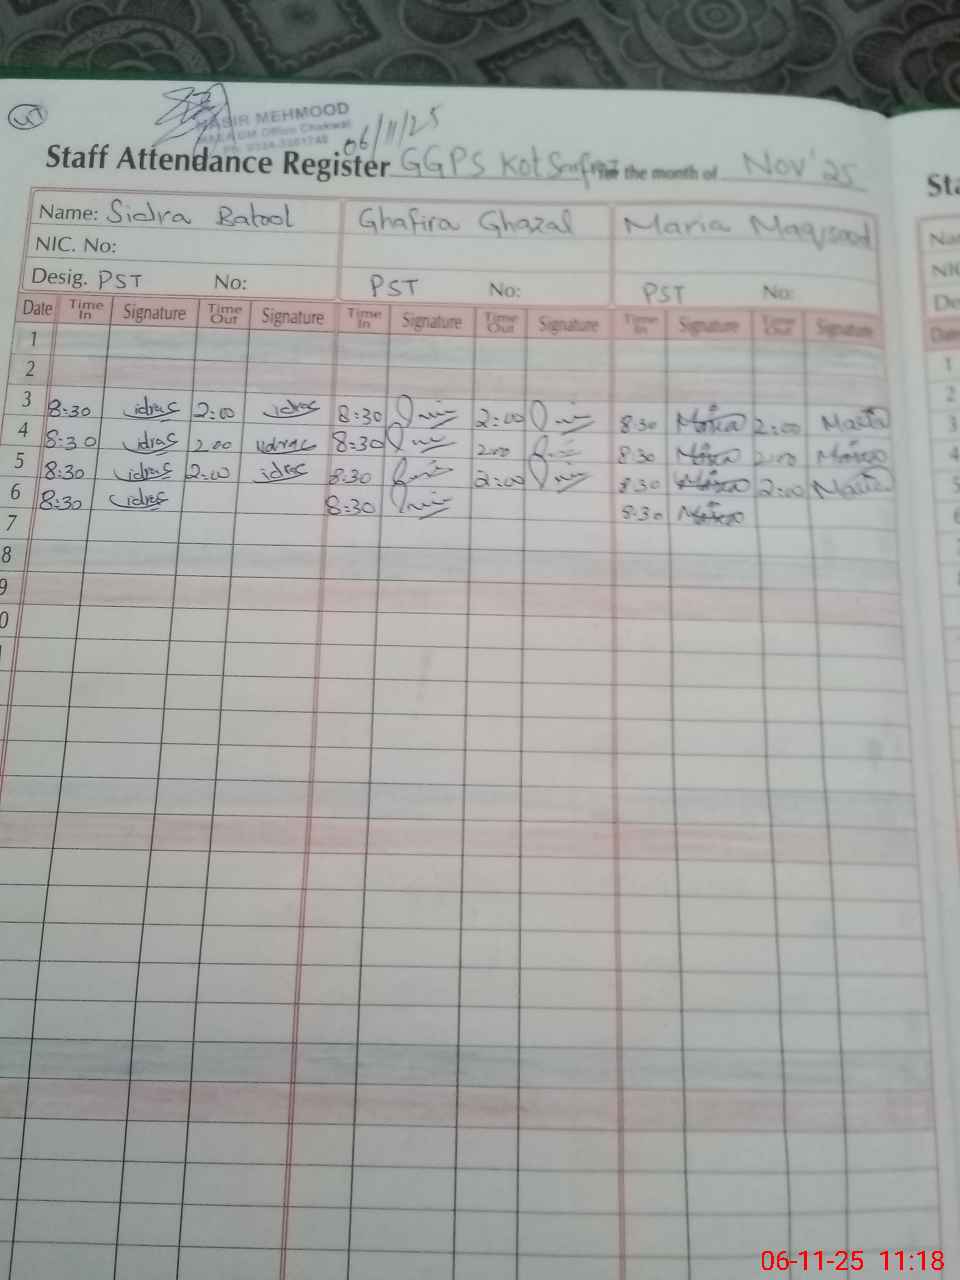 NASIR MEHMOOD
06/11/25
Staff Attendance Register GGPS Kot Sarfraz for the month of Nov'25
Name: Sidra Batool Ghafira Ghazal Maria Maqsood
NIC. No:
Desig. PST No: PST No: PST No:
Date Time In Signature Time Out Signature Time In Signature Time Out Signature Time In Signature Time Out Signature
1
2
3 8:30 2:00 8:30 2:00 8:30 Maria 2:00 Maria
4 8:30 2:00 8:30 2:00 8:30 Maria 2:00 Maria
5 8:30 2:00 8:30 2:00 8:30 Maria 2:00 Maria
6 8:30 8:30 8:30 Maria
7
8
9
0
06-11-25 11:18